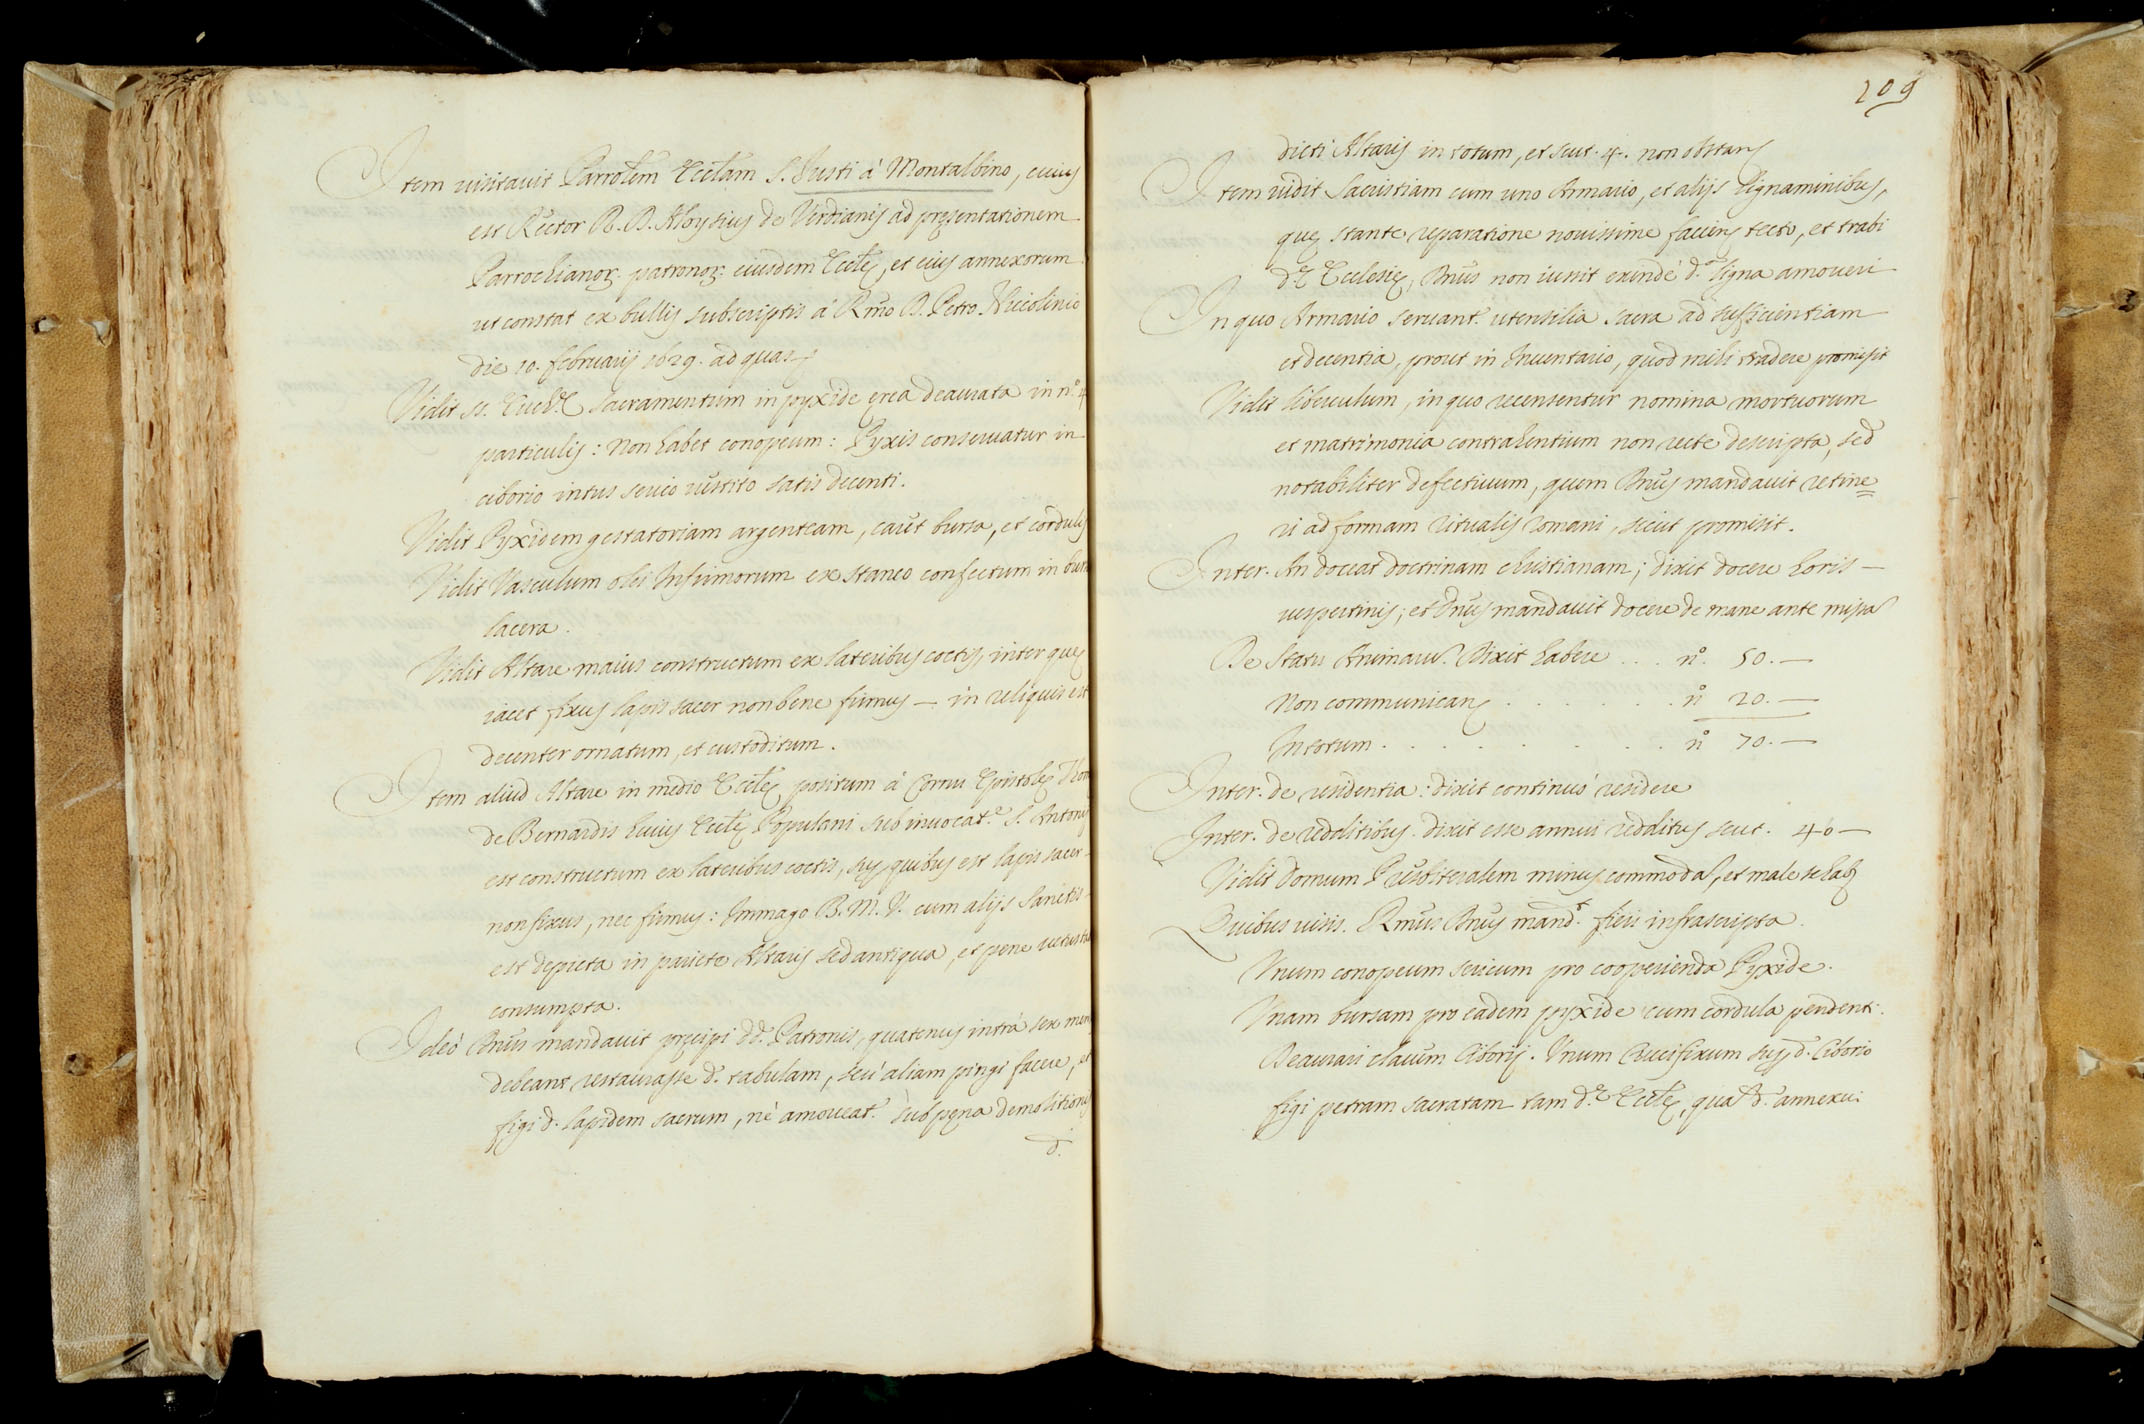 Item visitauit Parrolem Eccl̃am S. Justi à Montalbino, cuius
est Rector R. D. Aloysius de Verdianis ad pręsentationem
Parrochianoꝝ patronoꝝ eiusdem Eccl̃ę, et eius annexorum
ut constat ex bullis subscriptis à R̃mo D. Petro Niccolinio
die 10. februarij 1629. ad quas
Vidit SS. Euch.ę Sacramentum in pyxide ęrea deaurata in n.º 4
particulis: Non habet conopeum: Pyxis conseruatur in
ciborio intus serico uestito satis decenti.
Vidit Pyxidem gestatoriam argenteam, caret bursa, et cordulis
Vidit Vasculum olei Infirmorum ex staneo confectum in bursa
lacera.
Vidit Altare maius constructum ex lateribus coctis, inter quę
iacet fixus lapis sacer non bene firmus — in reliquis est
decenter ornatum, et custoditum.
Item aliud Altare in medio Eccl̃ę positum à Cornu Epistolę
de Bernardis huius Eccl̃ę Populani sub inuocat.e S. Antonij
est constructum ex lateribus coctis, sup quibus est lapis sacer
non fixus, nec firmus: Immago B. M. V. cum alijs Sanctis
est depicta in pariete Altaris sed antiqua, et pene uetustate
consumpta.
Ideò Dñus mandauit pręcipi dd. Patronis, quatenus intrà sex menses
debeant restaurasse d. tabulam, seu aliam pingi facere, et
figi d. lapidem sacrum, nè amoueat.r sub pęna demolitionis
d.
209
dicti Altaris in totum, et scut. 4. non obstañ
Item uidit Sacristiam cum uno Armario, et alijs lignaminibus,
quę stante reparatione nouissime facieñ tecto, et trabi
d.ę Ecclesię, Dñus non iussit exindè d. ligna amoueri
In quo Armario seruant.r utensilia sacra ad sufficientiam
et decentia, prout in Inuentario, quod mihi tradere promisit
Vidit liberculum, in quo recensentur nomina mortuorum
et matrimonia contrahentium non recte descripta, sed
notabiliter defectiuum, quem Dñus mandauit retine=
ri ad formam ritualis romani, sicut promisit.
Inter. An doceat doctrinam christianam; dixit docere horis —
uespertinis; et Dñus mandauit docere de mane ante missã
De Statu Animarũ. Dixit habere . . . nº. 50. —
Non communicañ . . . . . . . nº 20. —
In totum . . . . . . . . . nº 70. —
Inter. de residentia: dixit continuò residere
Inter. de redditibus. dixit esse annui redditus scut. 40 —
Vidit domum Presbiteralem minus commodã, et male se habẽ
Quibus uisis. R̃mus Dñus mand.t fieri infrascripta.
Vnum conopeum sericum pro cooperienda Pyxide.
Vnam bursam pro eadem pyxide cum cordula pendenti.
Deaurari clauem Ciborij. Vnum Crucifixum sup d. Ciborio
figi petram sacratam tam d.ę Eccl̃ę, quã d. annexę: